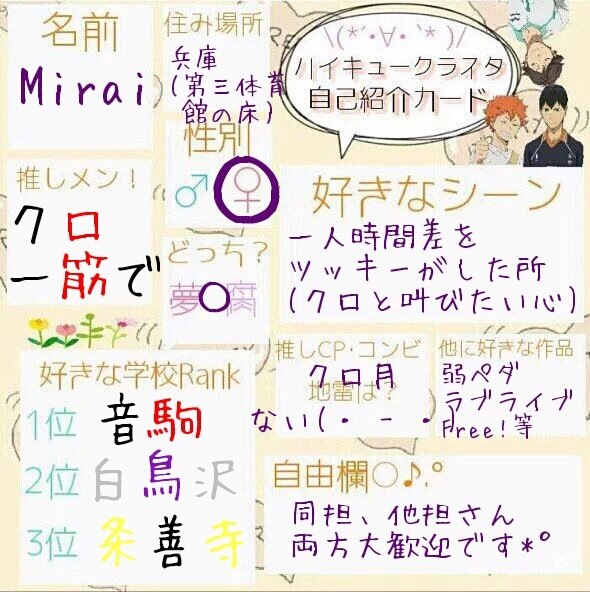 名前
Mirai
住み場所
兵庫
(第三体育
館の床)
\(*˙∀˙*)/
ハイキュークラスタ
自己紹介カード
性別
♂ ♀
推しメン!
クロ
一筋で
どっち?
夢○腐
好きなシーン
一人時間差を
ツッキーがした所
(クロと叫びたい心)
好きな学校Rank
1位 音駒
2位 白鳥沢
3位 条善寺
推しCP・コンビ
クロ月
地雷は?
ない(・-・)
他に好きな作品
弱ペダ
ラブライブ
Free!等
自由欄○♪.°
同担、他担さん
両方大歓迎です*°